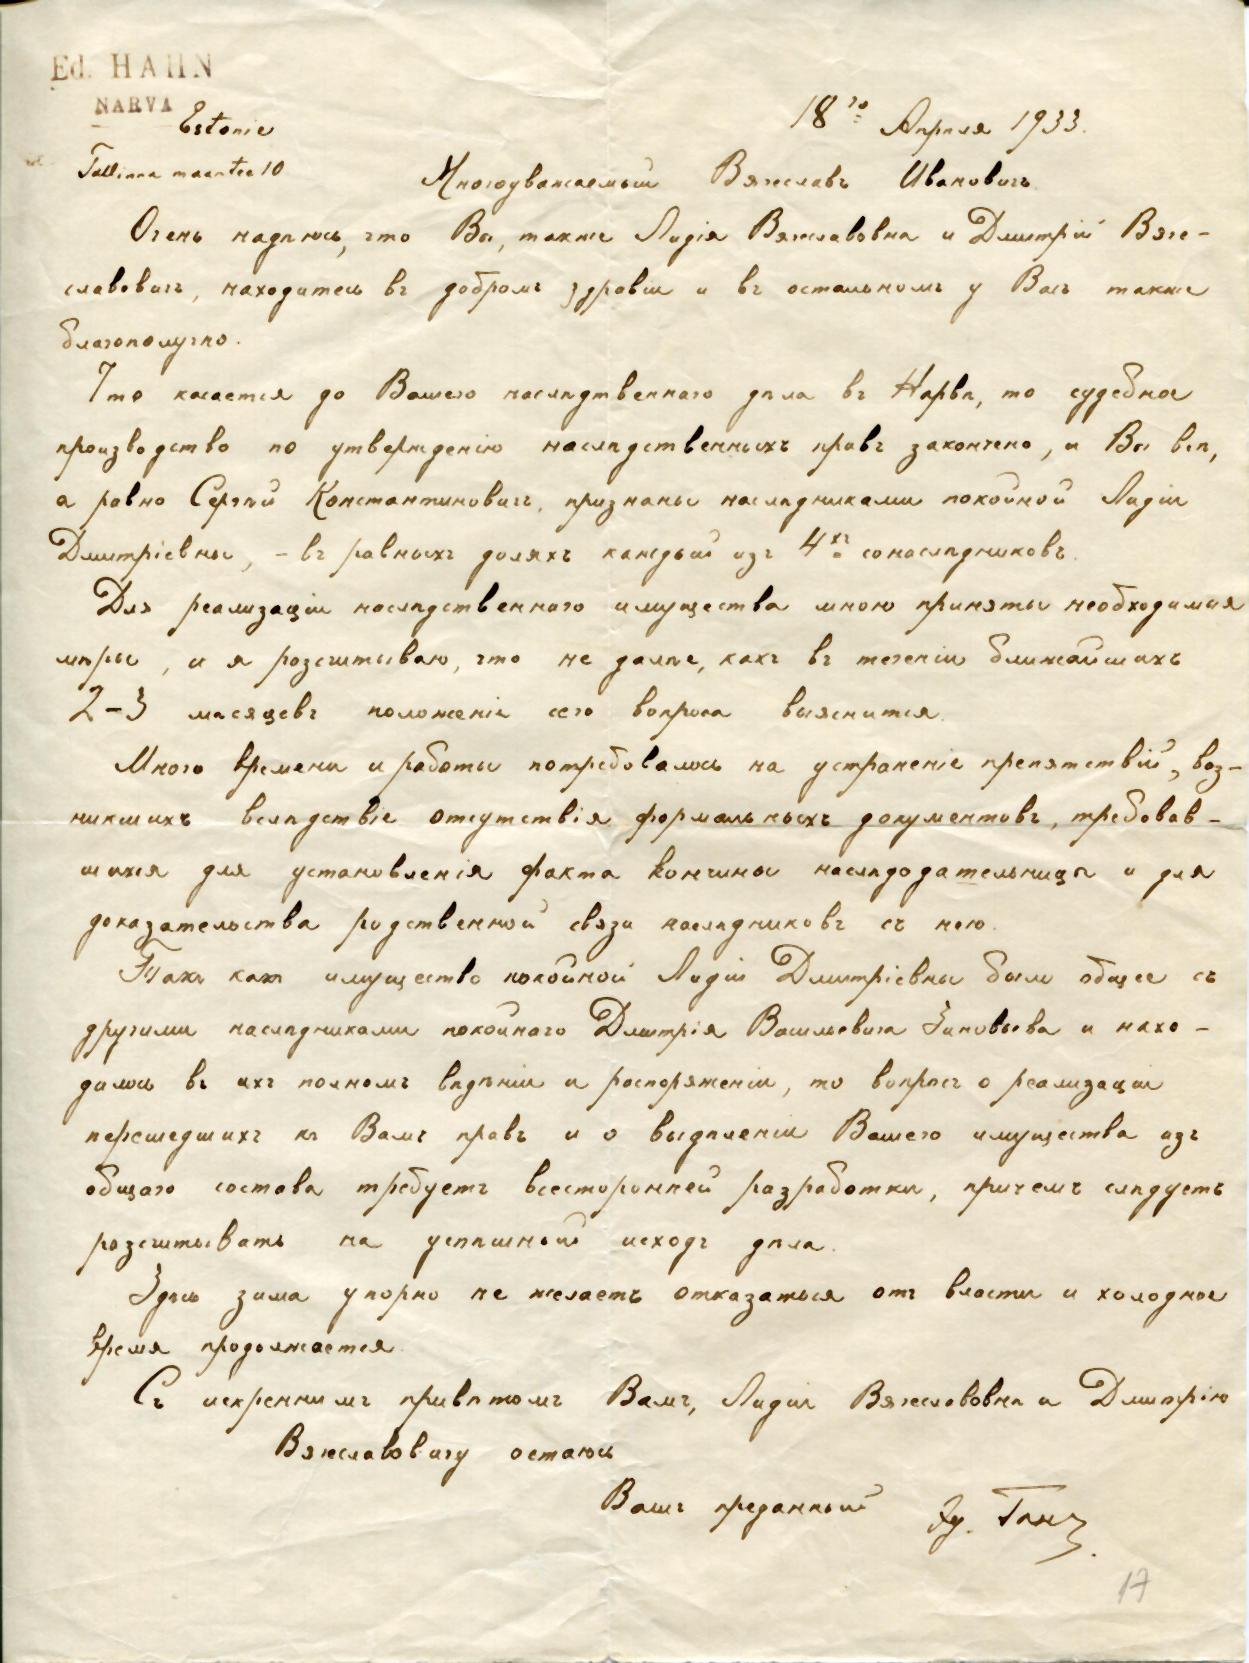 Ed. HAHN
NARVA
Estonie
Tallinna maantee 10
18го Апрѣля 1933.
Многоуважаемый Вячеславъ Ивановичъ
Очень надѣюсь, что Вы, также Лидія Вячеславовна и Дмитрій Вяче-
славовичъ, находитесь въ добромъ здравіи и въ остальномъ у Васъ также
благополучно.
Что касается до Вашего наслѣдственнаго дѣла въ Нарвѣ, то судебное
производство по утвержденію наслѣдственныхъ правъ закончено, и Вы всѣ,
а равно Сергѣй Константиновичъ, признаны наслѣдниками покойной Лидіи
Дмитріевны, – въ равныхъ доляхъ каждый изъ 4хъ сонаслѣдниковъ.
Для реализаціи наслѣдственнаго имущества мною приняты необходимыя
мѣры, и я розсчитываю, что не далѣе, какъ въ теченіи ближайшихъ
2–3 мѣсяцевъ положеніе сего вопроса выяснится.
Много времени и работы потребовалось на устраненіе препятствій, воз-
никшихъ вслѣдствіе отсутствія формальныхъ документовъ, требовав-
шихся для установленія факта кончины наслѣдодательницы и для
доказательства родственной связи наслѣдниковъ съ нею.
Такъ какъ имущество покойной Лидіи Дмитріевны было общее съ
другими наслѣдниками покойнаго Дмитрія Васильевича Зиновьева и нахо-
дилось въ ихъ полномъ вѣдѣніи и распоряженіи, то вопросъ о реализаціи
перешедшихъ къ Вамъ правъ и о выдѣленіи Вашего имущества изъ
общаго состава требуетъ всесторонней разработки, причемъ слѣдуетъ
розсчитывать на успѣшный исходъ дѣла.
Здѣсь зима упорно не желаетъ отказаться отъ власти и холодное
время продолжается.
Съ искреннимъ привѣтомъ Вамъ, Лидіи Вячеславовнѣ и Дмитрію
Вячеславовичу остаюсь
Вашъ преданный Эд. Ганъ.
17